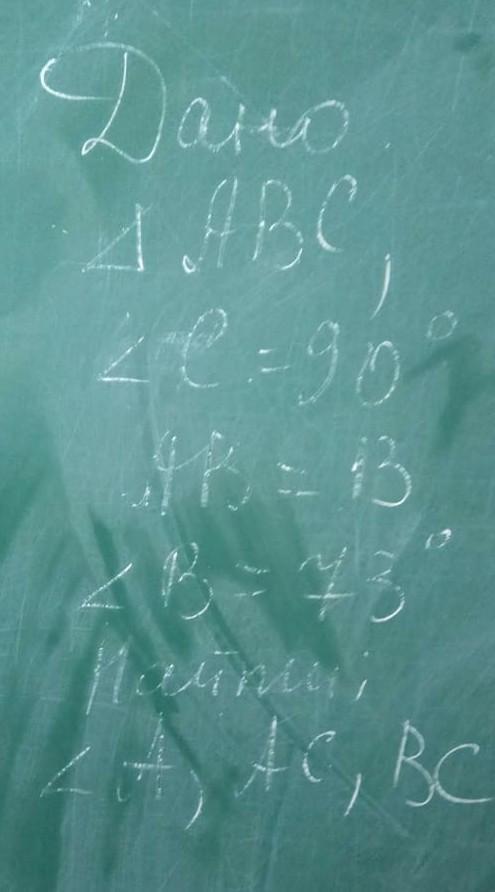 Дано
Δ ABC,
∠ C = 90°
AB = 13
∠ B = 73°
Найти:
∠ A, AC, BC